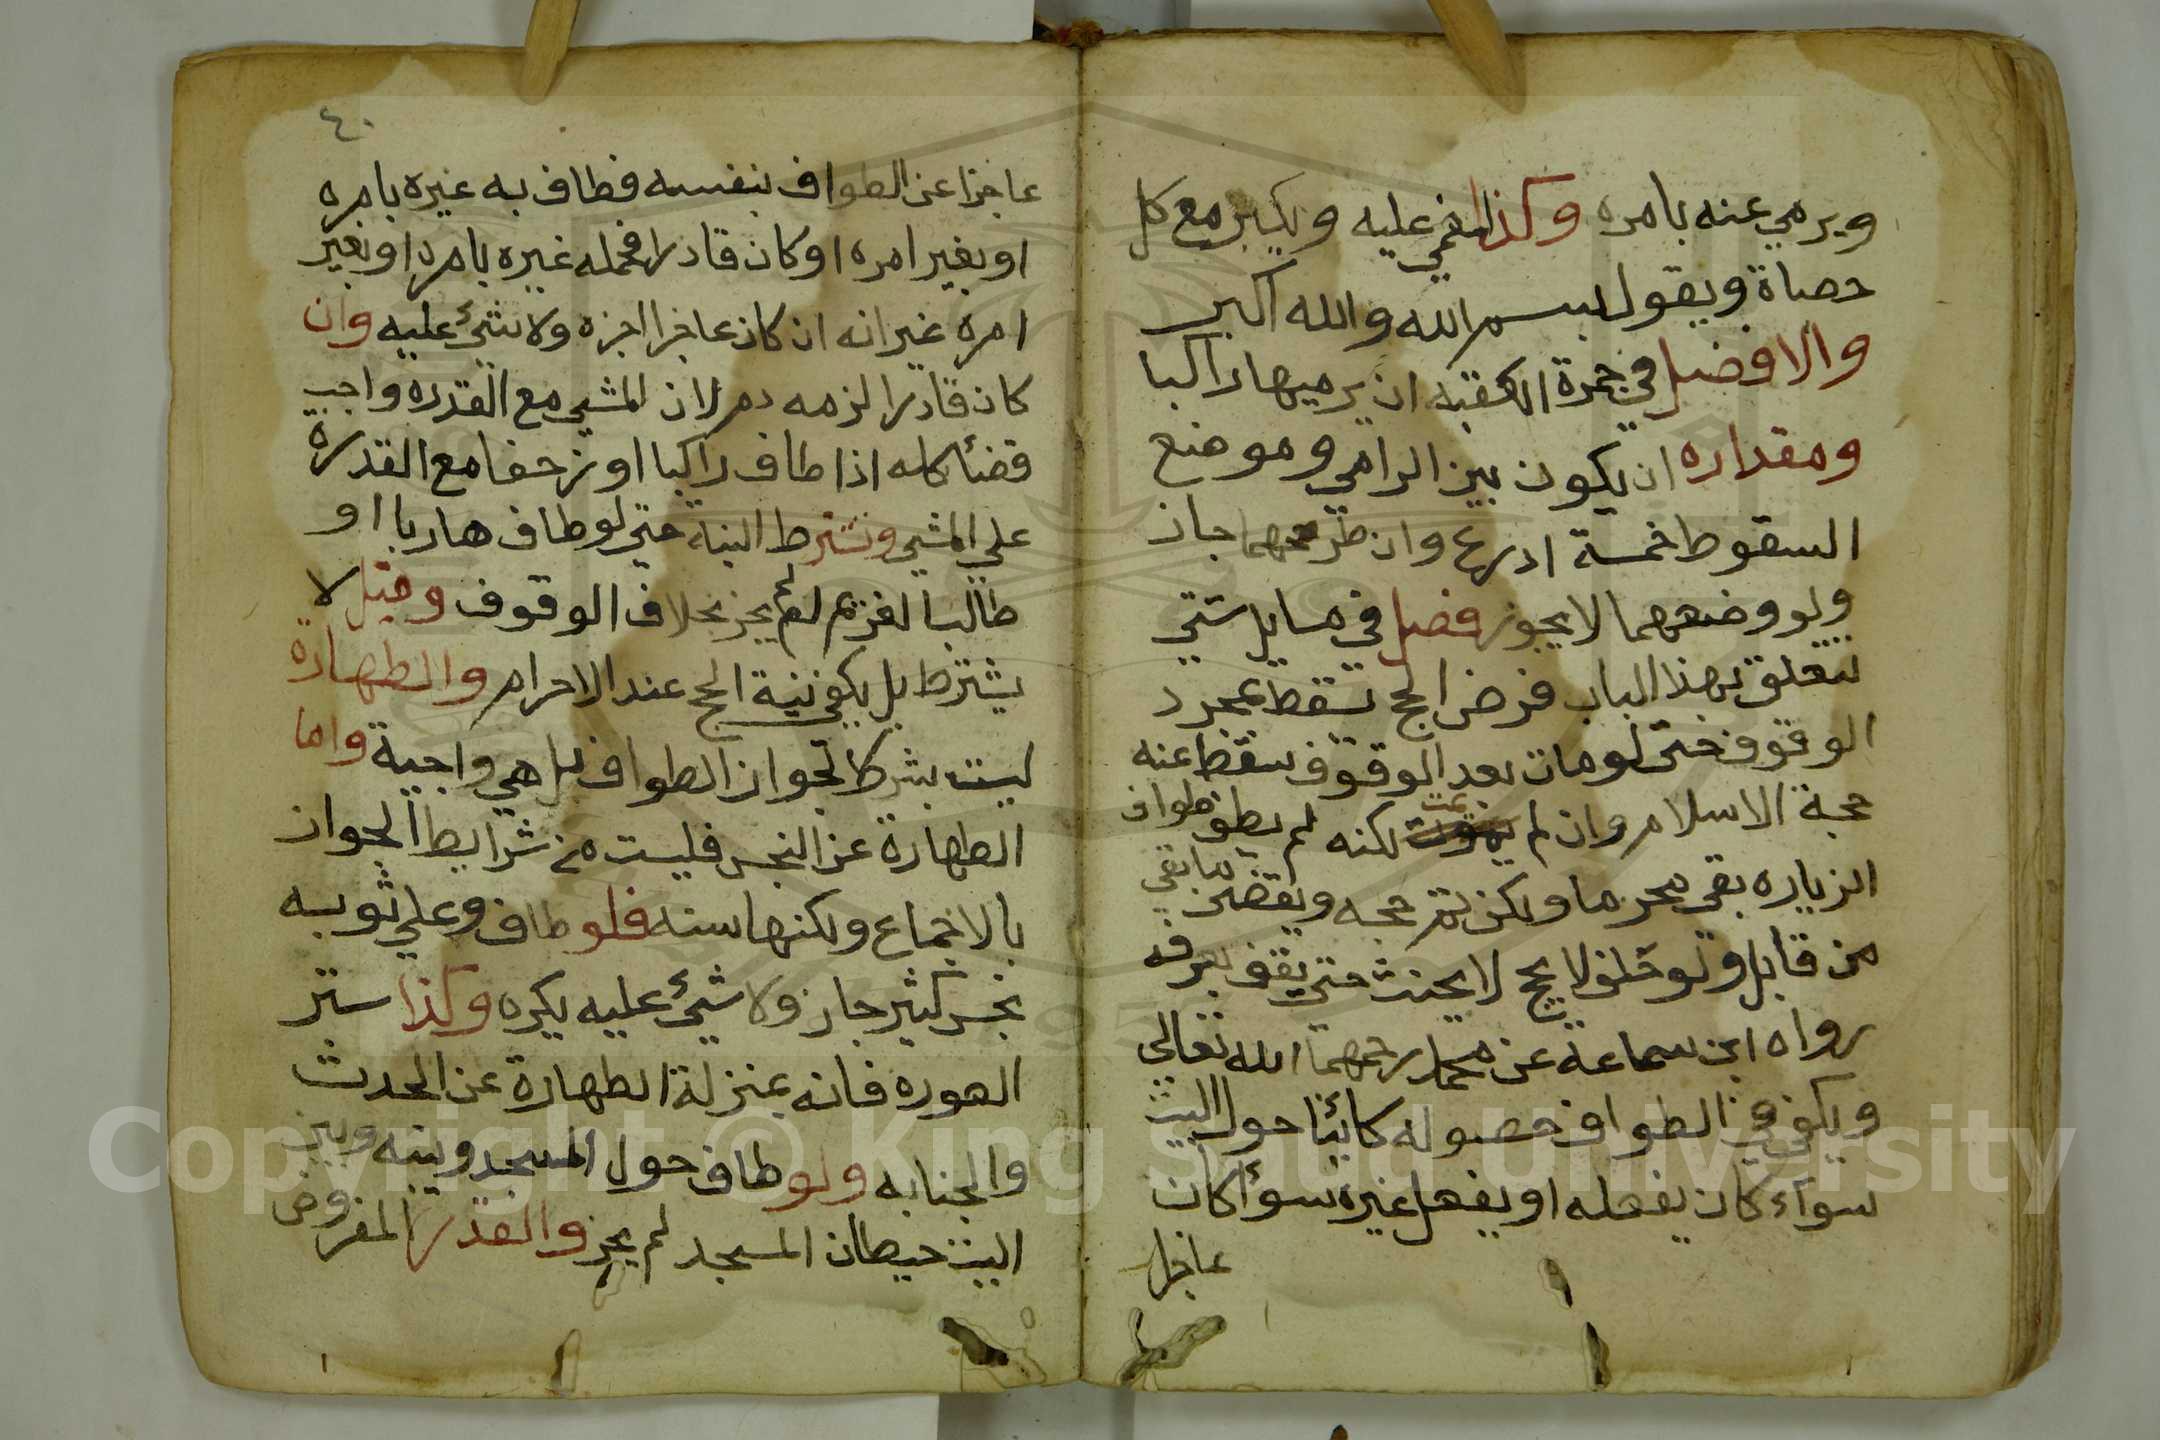 ويرمي عنه بامره وكذا المغمي عليه ويكبر مع كل
حصاة ويقول بسم الله والله اكبر
والافضل في جمرة العقبه ان يرميها راكبا
ومقداره ان يكون بين الرامي وموضع
السقوط خمسة اذرع وان طرحهما جاز
ولو وضعهما لا يجوز فصل في مسايل شتي
تتعلق بهذا الباب فرض الحج تسقط بمجرد
الوقوف حتى لو مات بعد الوقوف سقط عنه
حجة الاسلام وان لم يمت لكنه لم يطف طواف
الزياره بقي محرما ولكن تم حجه ويقضي ما بقي
من قابل ولو حلف لا يحج لا يحنث حتى يقف بعرفه
رواه ابن سماعة عن محمد رحمهما الله تعالى
ويكفي في الطواف حصوله كائنا حول البيت
سواء كان يفعله او يفعل غيره سواء كان
عاجزا
٤٠
عاجزا عن الطواف بنفسه فطاف به غيره بامره
او بغير امره او كان قادرا فحمله غيره بامره او بغير
امره غير انه ان كان عاجزا اجزه ولا شئ عليه وان
كان قادرا لزمه دم لان المشي مع القدره واجب
قضئا كله اذا طاف راكبا او زحفا مع القدرة
علي المشي وتشترط النية حتى لو طاف هاربا او
طالبا لغريم لم يجز بخلاف الوقوف وقيل لا
يشترط بل يكفي نية الحج عند الاحرام والطهارة
ليست بشرط لجواز الطواف بل هي واجبة واما
الطهارة عن النجس فليست من شرايط الجواز
بالاجماع ولكنها سنه فلو طاف وعلي ثوبه
نجس كثير جاز ولا شئ عليه يكره وكذا ستر
العوره فانه بمنزلة الطهارة عن الحدث
والجنابه ولو طاف حول المسجد وبينه وبين
البيت حيطان المسجد لم يجز والقدر المفروض
Copyright © King Saud University